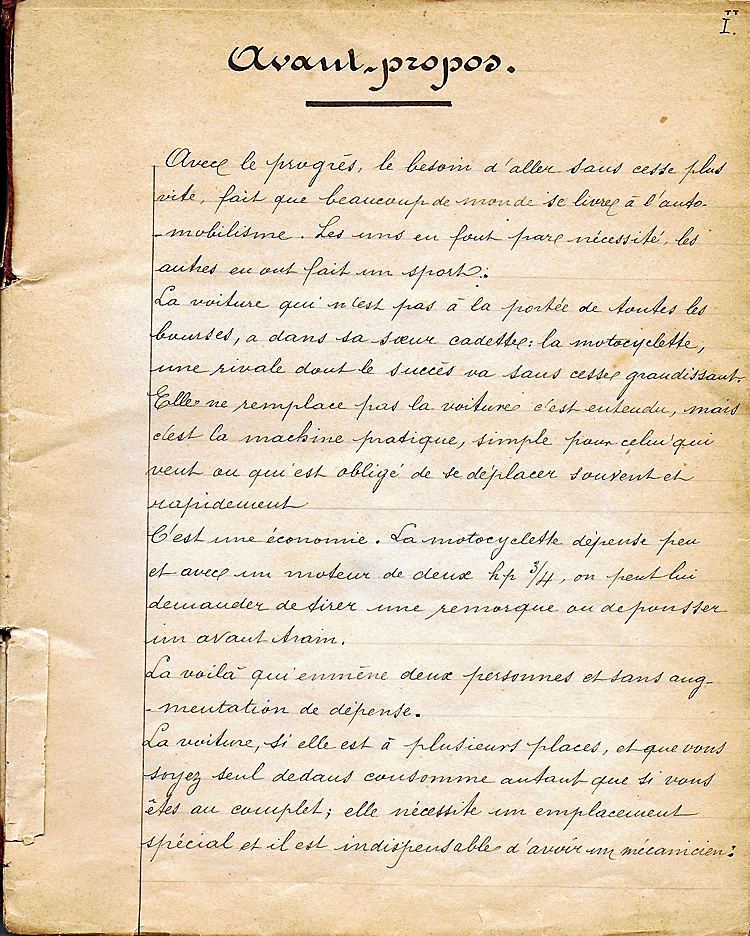 I.
Avant-propos.
Avec le progrès, le besoin d'aller sans cesse plus
vite, fait que beaucoup de monde se livre à l'auto-
-mobilisme. Les uns en font par nécessité, les
autres en ont fait un sport.
La voiture qui n'est pas à la portée de toutes les
bourses, a dans sa sœur cadette: la motocyclette,
une rivale dont le succès va sans cesse grandissant.
Elle ne remplace pas la voiture c'est entendu, mais
c'est la machine pratique, simple pour celui qui
veut ou qui est obligé de se déplacer souvent et
rapidement
C'est une économie. La motocyclette dépense peu
et avec un moteur de deux hp 3/4, on peut lui
demander de tirer une remorque ou de pousser
un avant train.
La voilà qui emmène deux personnes et sans aug-
-mentation de dépense.
La voiture, si elle est à plusieurs places, et que vous
soyez seul dedans consomme autant que si vous
êtes au complet; elle nécessite un emplacement
spécial et il est indispensable d'avoir un mécanicien: